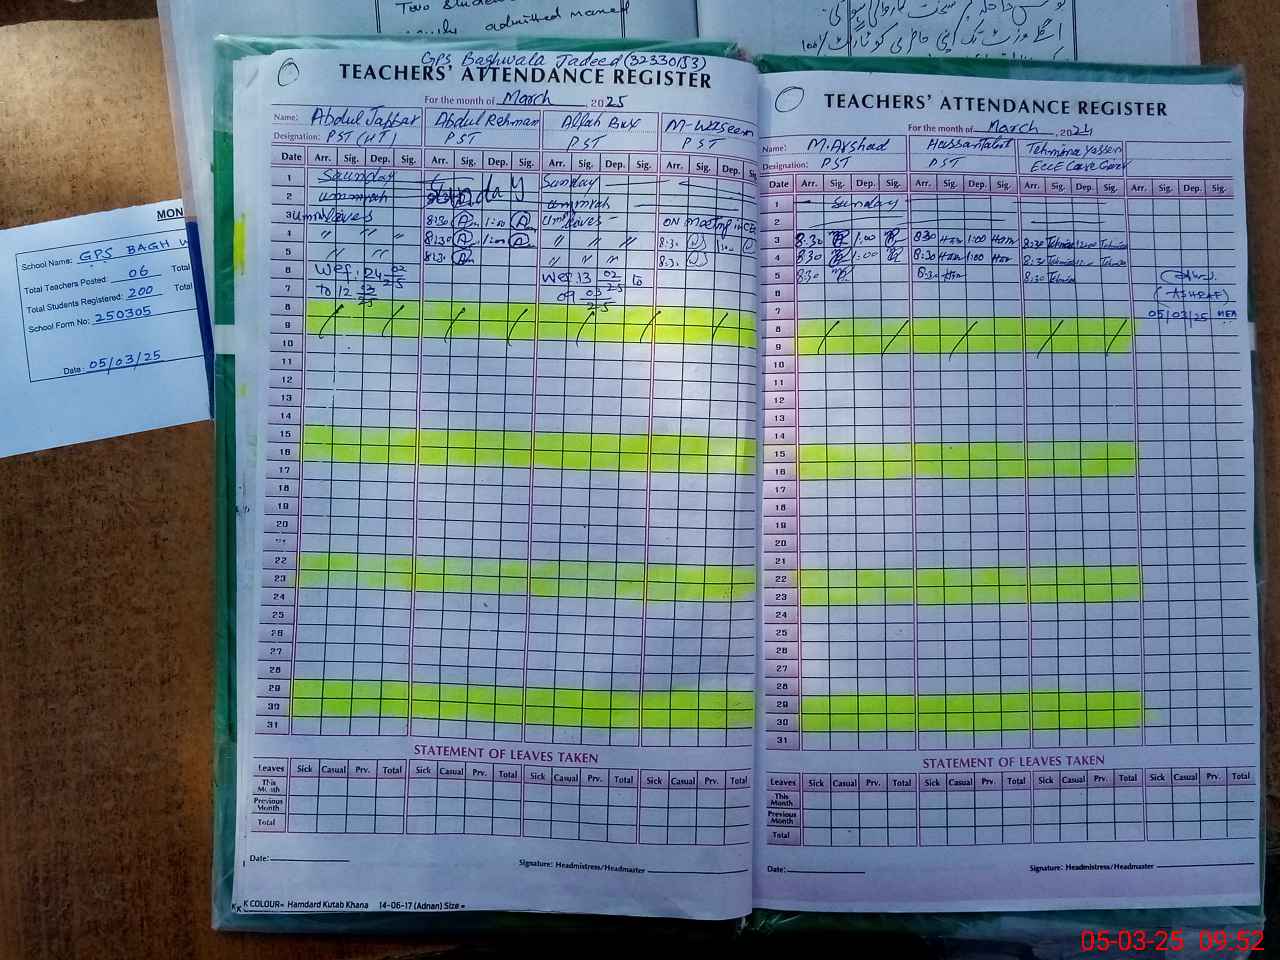 Two Stude
newly admitted
GPS Baghwala Jadeed (32330153)
TEACHERS' ATTENDANCE REGISTER
For the month of March, 2025
Name: Abdul Jabbar Abdul Rehman Allah Bux M-Waseem
Designation: PST (HT) PST PST PST
Date Arr. Sig. Dep. Sig. Arr. Sig. Dep. Sig. Arr. Sig. Dep. Sig. Arr. Sig. Dep. Sig.
1 Saunday Sunday Sunday
2 ummrah ummrah
3 8:30 1:00 leaves ON Meeting in
4 " " " 8:30 1:00 " " " 8:30
5 " " " 8:30 " " " 8:30
6 Wef. 24 02/25 Wef. 13 02/25 to
7 to 12 03/25 09 03/25
8
9
10
11
12
13
14
15
16
17
18
19
20
22
23
24
25
26
27
28
29
30
31
STATEMENT OF LEAVES TAKEN
Leaves Sick Casual Prv. Total Sick Casual Prv. Total Sick Casual Prv. Total Sick Casual Prv. Total
This Month
Previous Month
Total
Date: Signature: Headmistress/Headmaster
K COLOUR= Hamdard Kutab Khana 14-06-17 (Adnan) Size =
TEACHERS' ATTENDANCE REGISTER
For the month of March, 2024
Name: M.Arshad Tehmina Yaseen
Designation: PST PST ECCE Care Giver
Date Arr. Sig. Dep. Sig. Arr. Sig. Dep. Sig. Arr. Sig. Dep. Sig. Arr. Sig. Dep. Sig.
1 Sunday
2
3 8:30 1:00 8:30 1:00 8:30 Tehmina 12:00 Tehmina
4 8:30 1:00 8:30 1:00 8:30 Tehmina 12:00 Tehmina
5 8:30 8:30 8:30 Tehmina
6 (ASHRAF)
7 05/03/25 MEA
8
9
10
11
12
13
14
15
16
17
18
19
20
21
22
23
24
25
26
27
28
29
30
31
STATEMENT OF LEAVES TAKEN
Leaves Sick Casual Prv. Total Sick Casual Prv. Total Sick Casual Prv. Total Sick Casual Prv. Total
This Month
Previous Month
Total
Date: Signature: Headmistress/Headmaster
MON
School Name: GPS BAGH W
Total Teachers Posted: 06 Total
Total Students Registered: 200 Total
School Form No: 250305
Date: 05/03/25
05-03-25 09:52